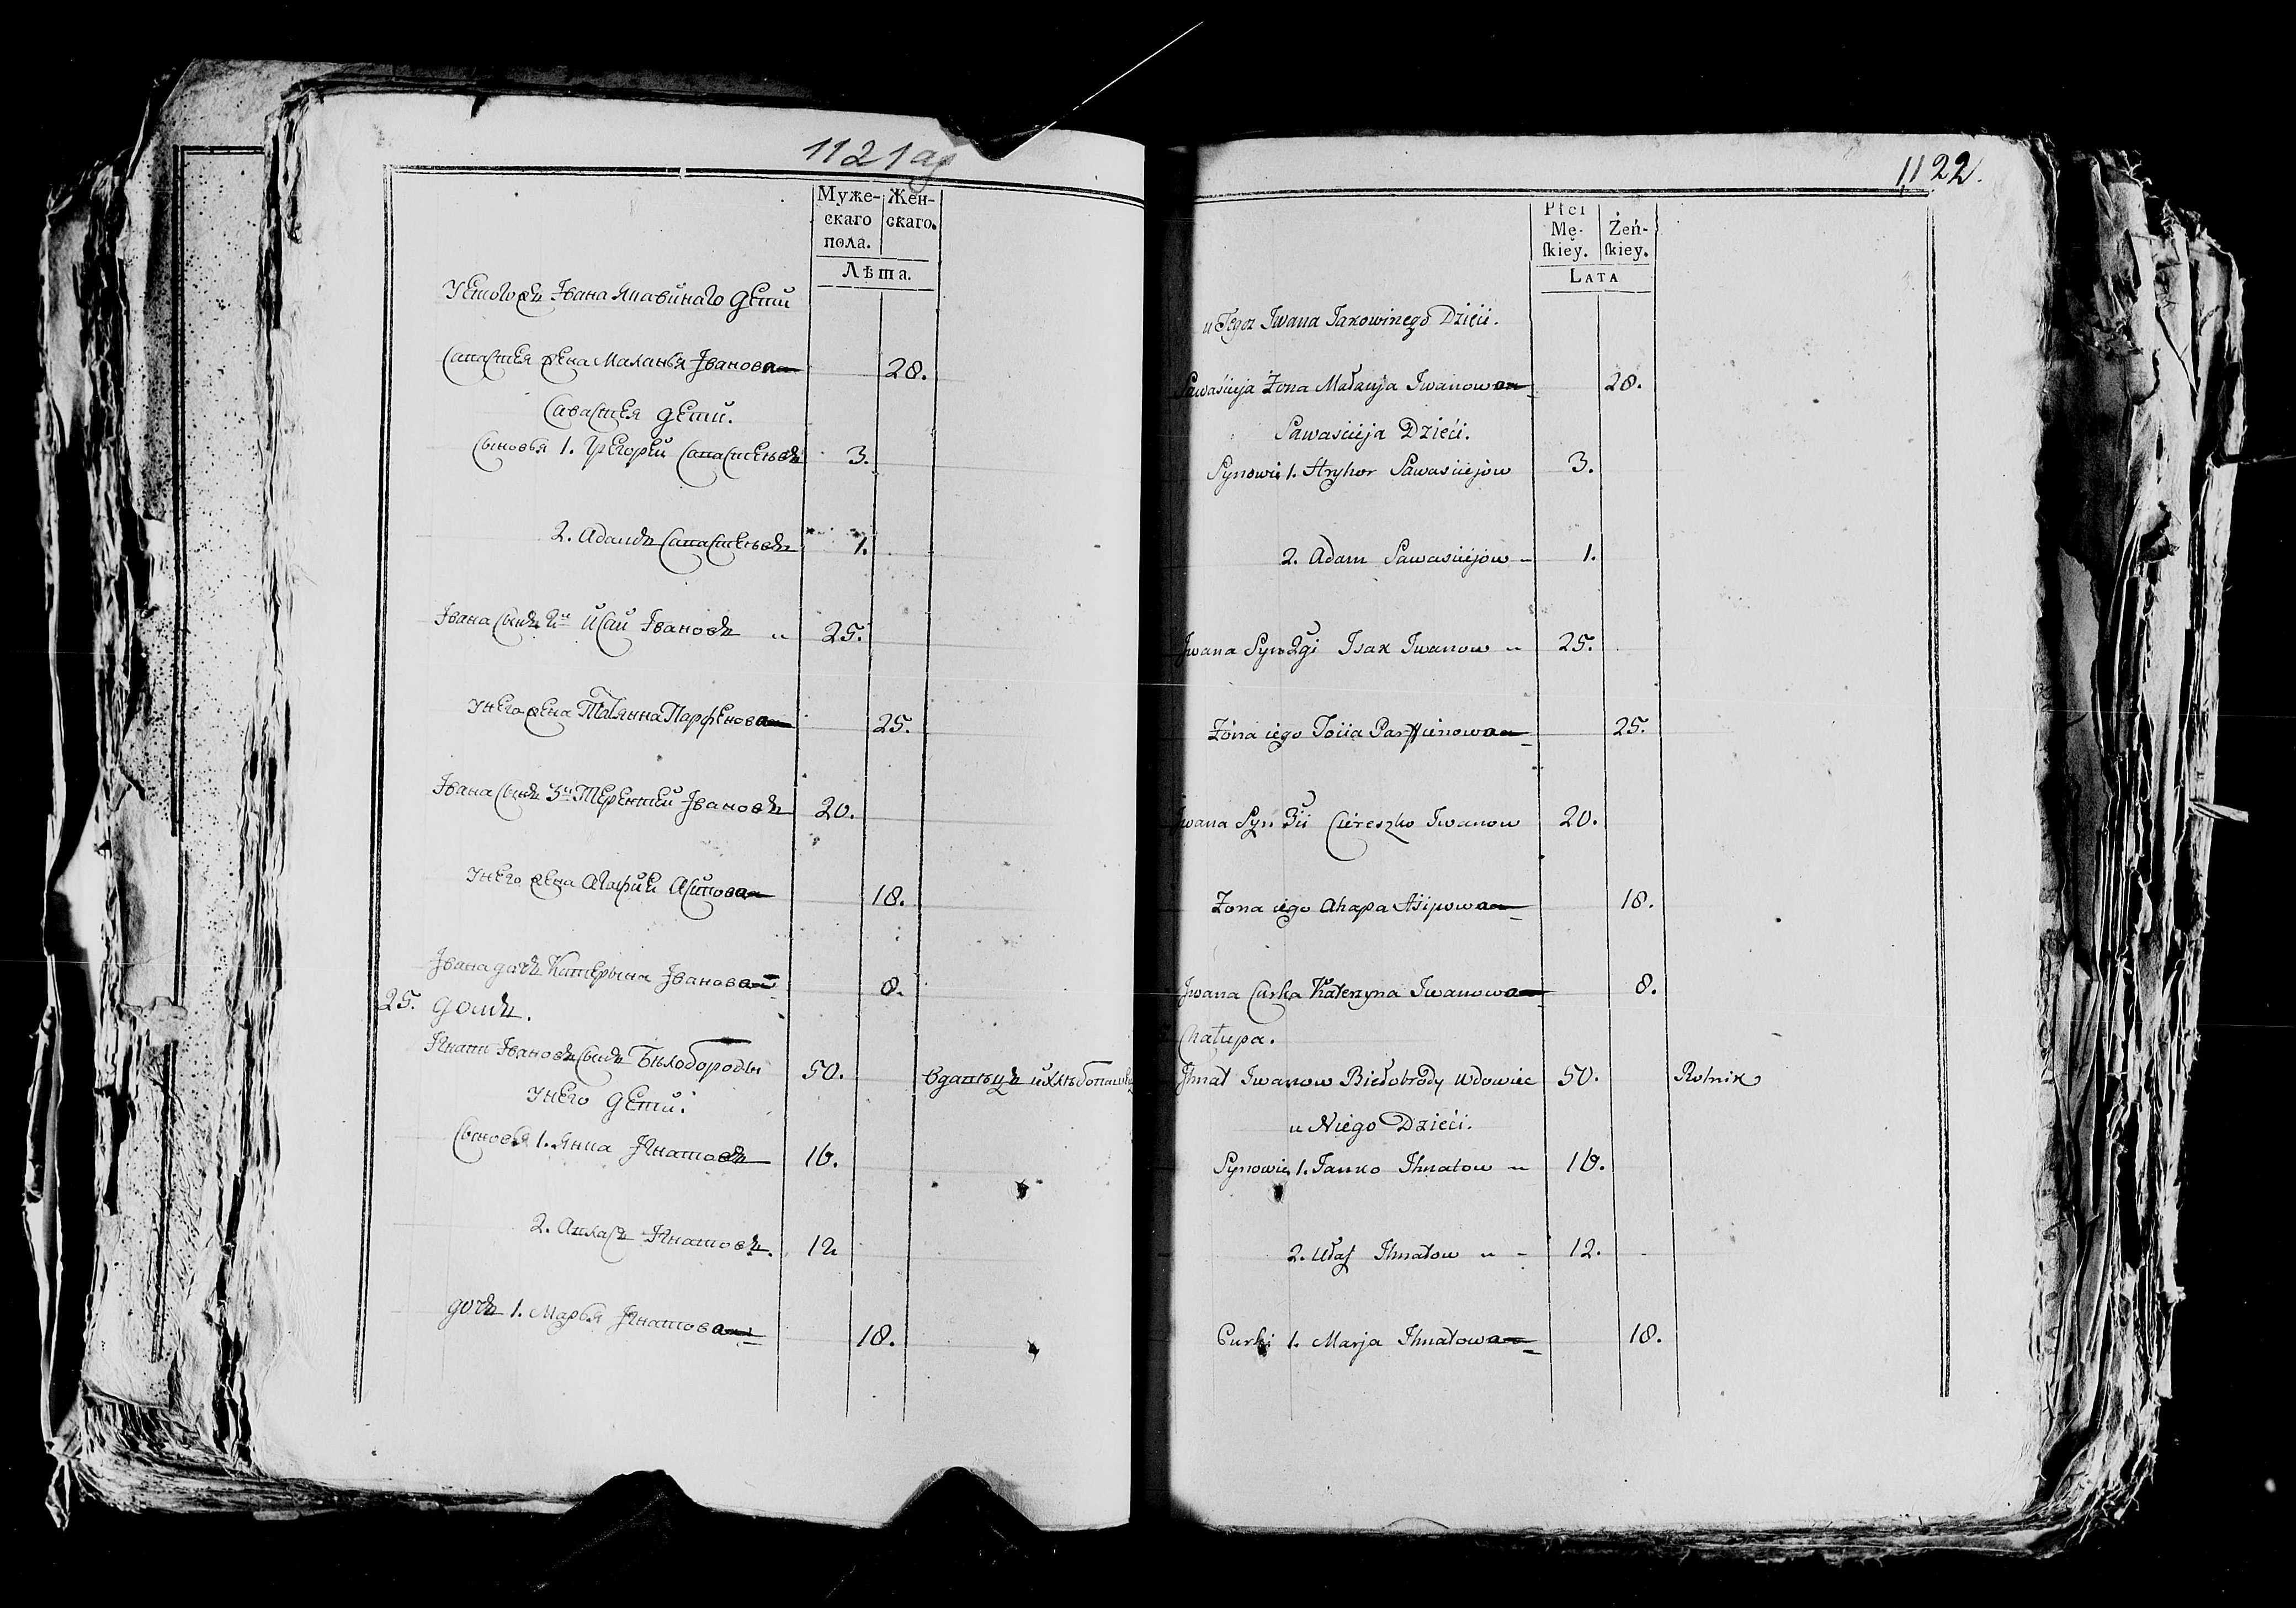 1121 об
Муже-
скаго
пола.
Жен-
скаго.
Лѣта.
Утогожъ Івана Яковинаго дети
Савастея жена Маланья Іванова 28.
Савастея дети.
Сыновья 1. Григорей Савастеевъ 3.
2. Адамъ Савастеевъ 1.
Івана сынъ 2й Исакъ Івановъ 25.
Унего жена Татянна Парфенова 25.
Івана сынъ 3й Терентей Івановъ 20.
Унего жена Агафия Асипова 18.
Івана дочь Катерына Іванова 8.
25. домъ.
Игнатъ Івановъ сынъ Бѣлобороды 50. вдовецъ и хлѣбопашец
Унего дети:
Сыновья 1. Янка Игнатовъ 16.
2. Ауласъ Игнатовъ. 12
дочь 1. Марья Игнатова 18.
1122.
Płci
Mę-
skiey.
Żeń-
skiey.
LATA
u Tegoż Iwana Jakowinego Dzieci.
Sawaścieja Żona Małanja Iwanowa 28.
Sawaścieja Dzieci.
Synowie 1. Hryhor Sawaściejow 3.
2. Adam Sawaściejow 1.
Iwana Syn 2gi Isak Iwanow 25.
Żona iego Tocia Parfienowa 25.
Iwana Syn 3ci Ciereszko Iwanow 20.
Żona iego Ahapa Asipowa 18.
Iwana Curka Katerzyna Iwanowa 8.
Chałupa.
Ihnat Iwanow Biełobrody Wdowiec 50. Rolnik
u Niego Dzieci.
Synowie 1. Janko Ihnatow 16.
2. Ułas Ihnatow 12.
Curki 1. Marja Ihnatowa 18.